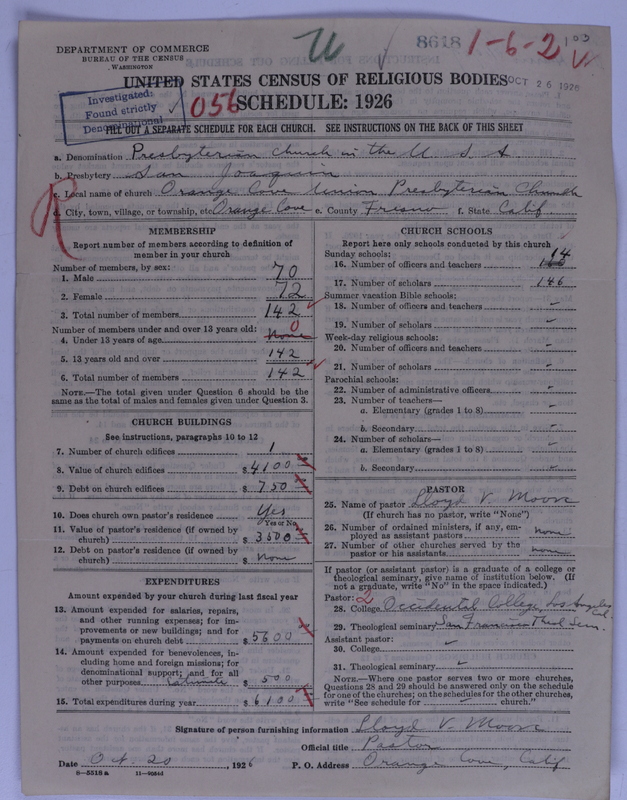 8618
1-6-2
DEPARTMENT OF COMMERCE
BUREAU OF THE CENSUS
WASHINGTON
UNITED STATES CENSUS OF RELIGIOUS BODIES
OCT 26 1926
SCHEDULE: 1926
056
Investigated:
Found strictly
Denominational
FILL OUT A SEPARATE SCHEDULE FOR EACH CHURCH. SEE INSTRUCTIONS ON THE BACK OF THIS SHEET
a. Denomination Presbyterian Church in the U S A
b. Presbytery San Joaquin
c. Local name of church Orange Cove Union Presbyterian Church
d. City, town, village, or township, etc. Orange Cove e. County Fresno f. State Calif.
R
MEMBERSHIP
Report number of members according to definition of
member in your church
Number of members, by sex:
1. Male 70
2. Female 72
3. Total number of members 142
Number of members under and over 13 years old:
4. Under 13 years of age none 0
5. 13 years old and over 142
6. Total number of members 142
NOTE.—The total given under Question 6 should be the
same as the total of males and females given under Question 3.
CHURCH BUILDINGS
See instructions, paragraphs 10 to 12
7. Number of church edifices 1
8. Value of church edifices $ 4100
9. Debt on church edifices $ 750
10. Does church own pastor's residence? Yes
Yes or No
11. Value of pastor's residence (if owned by
church) $ 3500
12. Debt on pastor's residence (if owned by
church) $ None
EXPENDITURES
Amount expended by your church during last fiscal year
13. Amount expended for salaries, repairs,
and other running expenses; for im-
provements or new buildings; and for
payments on church debt $ 5600
14. Amount expended for benevolences, in-
cluding home and foreign missions; for
denominational support; and for all
other purposes $ 500
15. Total expenditures during year $ 6100
CHURCH SCHOOLS
Report here only schools conducted by this church
Sunday schools:
16. Number of officers and teachers 14
17. Number of scholars 146
Summer vacation Bible schools:
18. Number of officers and teachers
19. Number of scholars
Week-day religious schools:
20. Number of officers and teachers
21. Number of scholars
Parochial schools:
22. Number of administrative officers
23. Number of teachers—
a. Elementary (grades 1 to 8)
b. Secondary
24. Number of scholars—
a. Elementary (grades 1 to 8)
b. Secondary
PASTOR
25. Name of pastor Lloyd V. Moore
(If church has no pastor, write "None")
26. Number of ordained ministers, if any, em-
ployed as assistant pastors none
27. Number of other churches served by the
pastor or his assistants none
If pastor (or assistant pastor) is a graduate of a college or
theological seminary, give name of institution below. (If
not a graduate, write "No" in the space indicated.)
Pastor: 2
28. College Occidental College, Los Angeles
29. Theological seminary San Francisco Theol. Sem.
Assistant pastor:
30. College
31. Theological seminary
NOTE.—Where one pastor serves two or more churches,
Questions 28 and 29 should be answered only on the schedule
for one of the churches; on the schedules for the other churches,
write "See schedule for church."
Signature of person furnishing information Lloyd V. Moore
Official title Pastor
Date Oct. 20, 1926 P. O. Address Orange Cove, Calif
8—5518 a 11—9054d